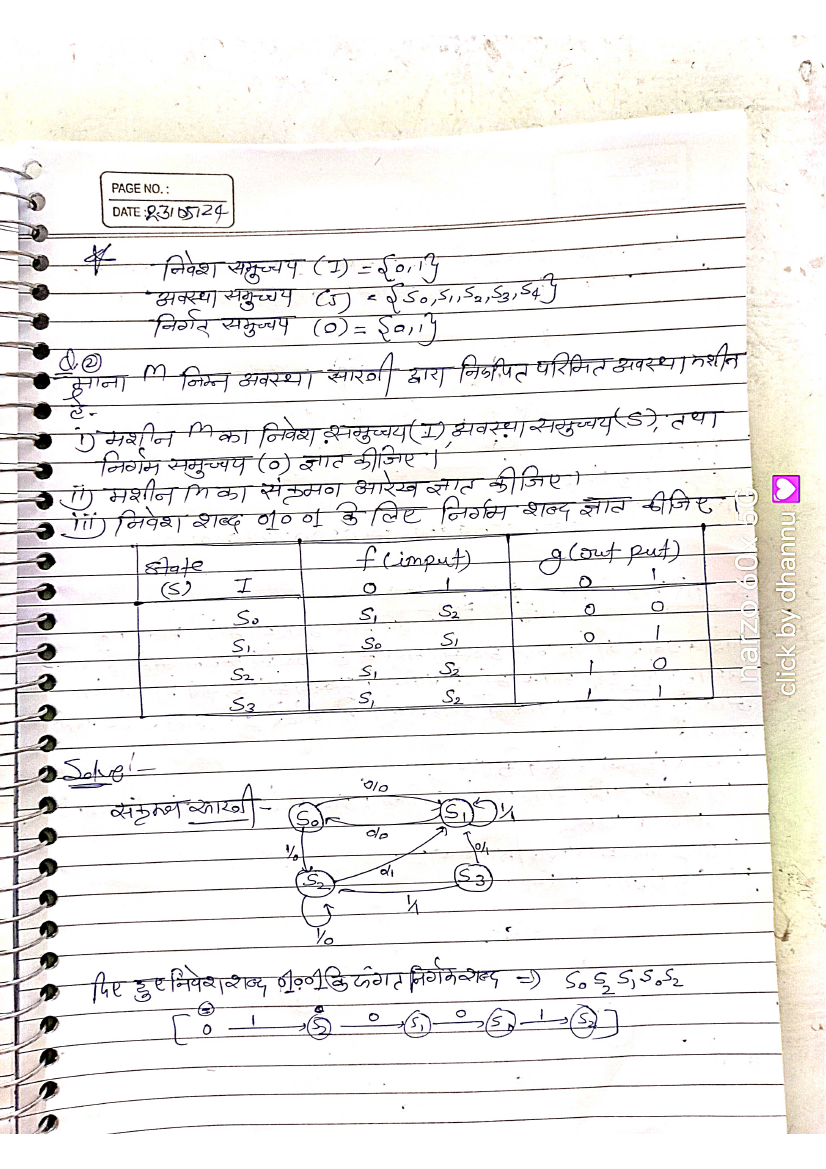 PAGE NO.:
DATE: 23/05/24
निवेश समुच्चय (I) = {0,1}
अवस्था समुच्चय (S) = {S0, S1, S2, S3, S4}
निर्गत समुच्चय (O) = {0,1}
Q.②
माना M निम्न अवस्था सारणी द्वारा निरूपित परिमित अवस्था मशीन
है-
i) मशीन M का निवेश समुच्चय (I), अवस्था समुच्चय (S), तथा
निर्गम समुच्चय (O) ज्ञात कीजिए।
ii) मशीन M का संक्रमण आरेख ज्ञात कीजिए।
iii) निवेश शब्द 01001 के लिए निर्गम शब्द ज्ञात कीजिए।
state f (imput) g (out put)
(S) I 0 1 0 1
S0 S1 S2 0 0
S1 S0 S1 0 1
S2 S1 S2 1 0
S3 S1 S2 1 1
Solve:-
संक्रमण सारणी-
0/0
S0 S1 1/1
0/0
1/0 0/1 0/1
S2 S3
1/1
1/0
दिए हुए निवेश शब्द निर्गम शब्द => S0 S2 S1 S0 S2
[ 0 1 S2 0 S1 0 1 S2 ]
narzo 60x 5G
click by dhannu